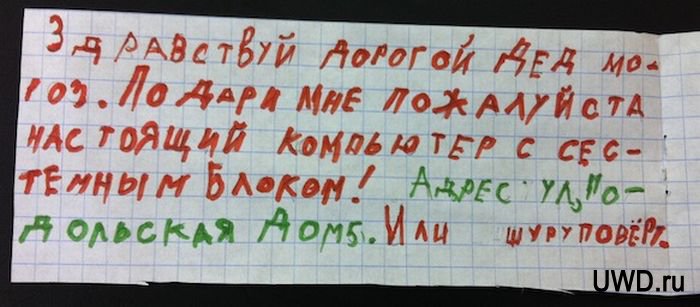 Здравствуй дорогой, Дед мо-
роз. Подари мне пожалуйста
настоящий компьютер с сес-
темным блоком! Адрес: ул, По-
дольская дом5. Или шуруповёрт.
UWD.ru